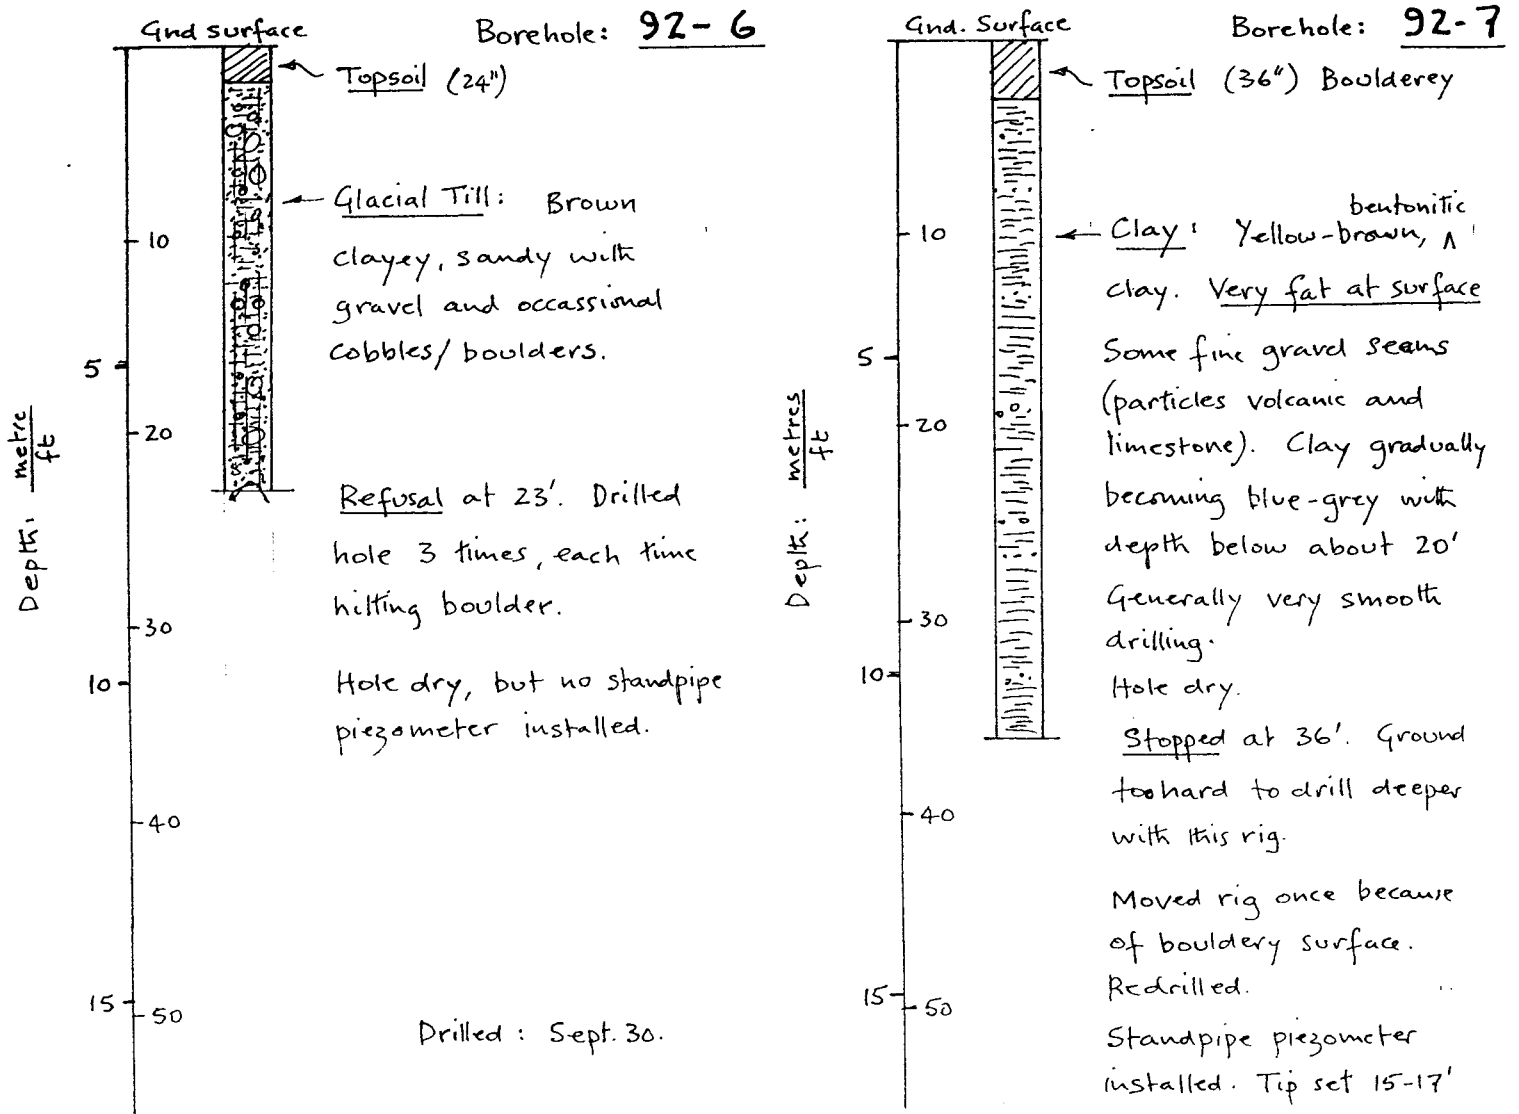 Gnd surface
Borehole: 92-6
Topsoil (24")
Glacial Till: Brown
clayey, sandy with
gravel and occassional
cobbles/boulders.
Refusal at 23'. Drilled
hole 3 times, each time
hitting boulder.
Hole dry, but no standpipe
piezometer installed.
Drilled: Sept. 30.
Depth: metre
ft
10
5
20
30
10
40
15
50
Gnd. Surface
Borehole: 92-7
Topsoil (36") Boulderey
bentonitic
Clay: Yellow-brown, ∧
clay. Very fat at surface
Some fine gravel seams
(particles volcanic and
limestone). Clay gradually
becoming blue-grey with
depth below about 20'
Generally very smooth
drilling.
Hole dry.
Stopped at 36'. Ground
too hard to drill deeper
with this rig.
Moved rig once because
of bouldery surface.
Redrilled.
Standpipe piezometer
installed. Tip set 15-17'
Depth: metres
ft
10
5
20
30
10
40
15
50